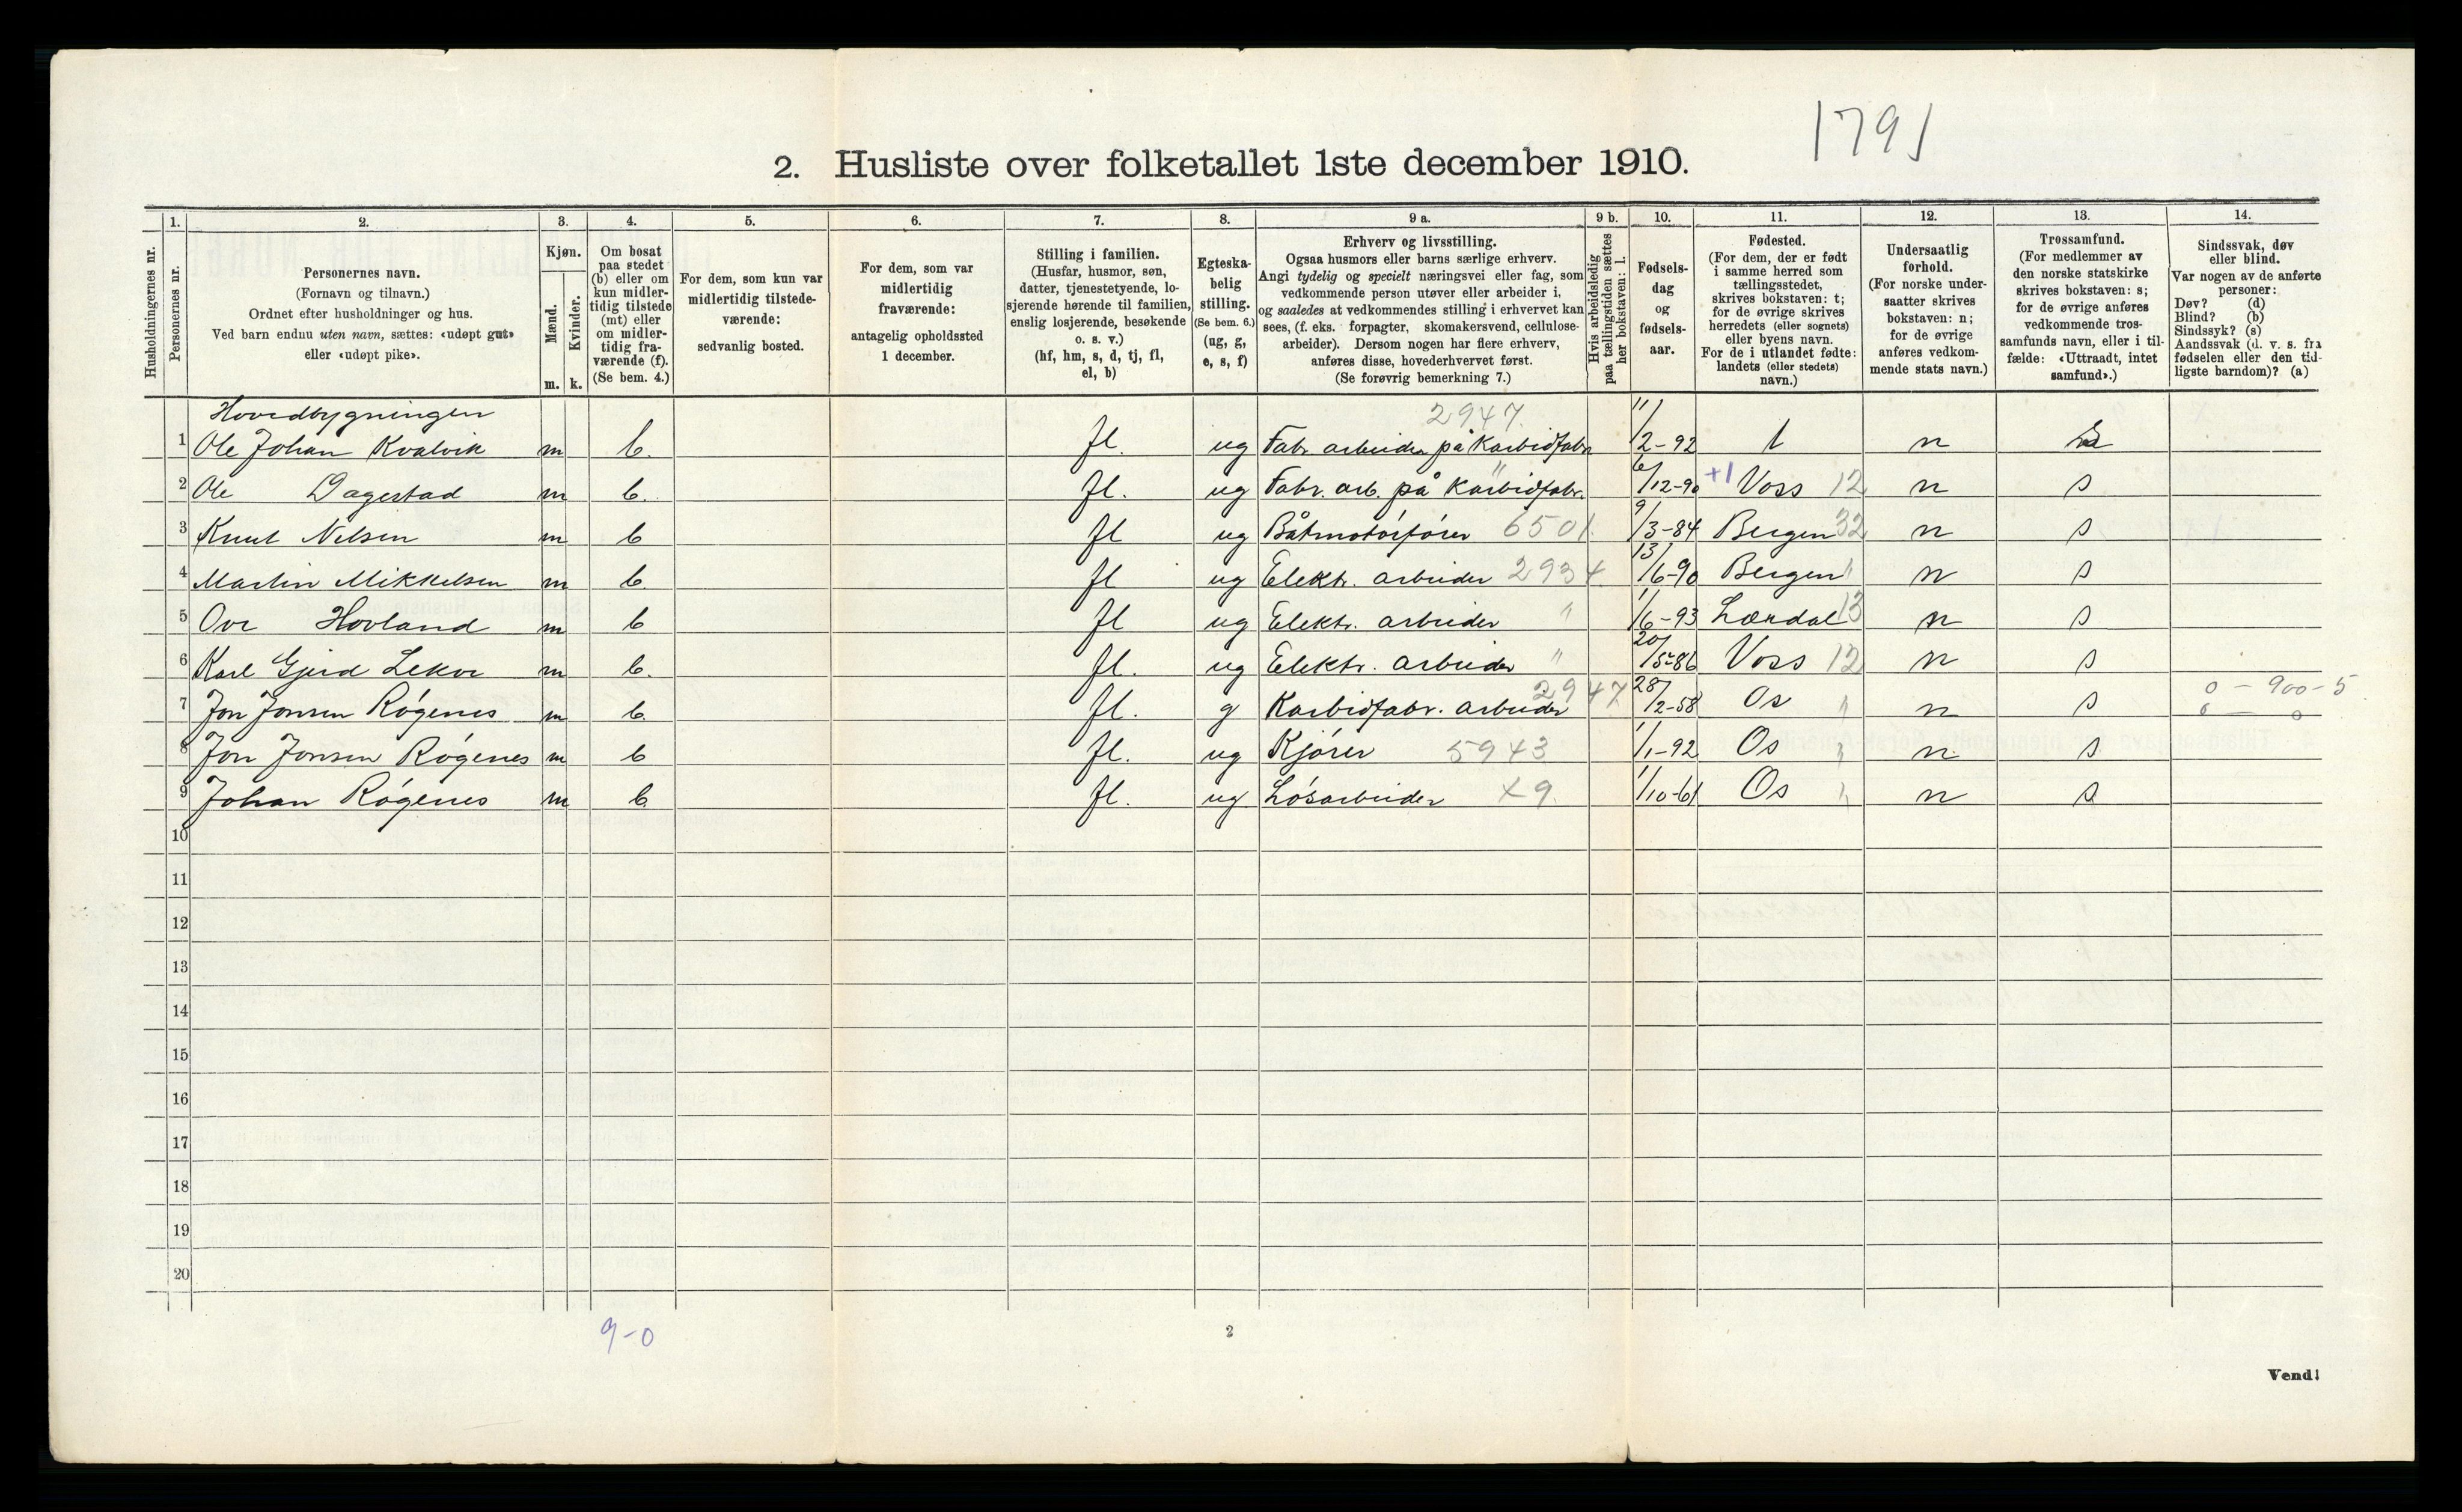 1791
2. Husliste over folketallet 1ste december 1910.
1. 2. 3. 4. 5. 6. 7. 8. 9 a. 9 b. 10. 11. 12. 13. 14.
Husholdningernes nr.
Personernes nr.
Personernes navn.
(Fornavn og tilnavn.)
Ordnet efter husholdninger og hus.
Ved barn endnu uten navn, sættes: «udøpt gut»
eller «udøpt pike».
Kjøn.
Mænd.
Kvinder.
m. k.
Om bosat
paa stedet
(b) eller om
kun midler-
tidig tilstede
(mt) eller
om midler-
tidig fra-
værende (f).
(Se bem. 4.)
For dem, som kun var
midlertidig tilstede-
værende:
sedvanlig bosted.
For dem, som var
midlertidig
fraværende:
antagelig opholdssted
1 december.
Stilling i familien.
(Husfar, husmor, søn,
datter, tjenestetyende, lo-
sjerende hørende til familien,
enslig losjerende, besøkende
o. s. v.)
(hf, hm, s, d, tj, fl,
el, b)
Egteska-
belig
stilling.
(Se bem. 6.)
(ug, g,
e, s, f)
Erhverv og livsstilling.
Ogsaa husmors eller barns særlige erhverv.
Angi tydelig og specielt næringsvei eller fag, som
vedkommende person utøver eller arbeider i,
og saaledes at vedkommendes stilling i erhvervet kan
sees, (f. eks. forpagter, skomakersvend, cellulose-
arbeider). Dersom nogen har flere erhverv,
anføres disse, hovederhvervet først.
(Se forøvrig bemerkning 7.)
Hvis arbeidsledig
paa tællingstiden sættes
her bokstaven: l.
Fødsels-
dag
og
fødsels-
aar.
Fødested.
(For dem, der er født
i samme herred som
tællingsstedet,
skrives bokstaven: t;
for de øvrige skrives
herredets (eller sognets)
eller byens navn.
For de i utlandet fødte:
landets (eller stedets)
navn.)
Undersaatlig
forhold.
(For norske under-
saatter skrives
bokstaven: n;
for de øvrige
anføres vedkom-
mende stats navn.)
Trossamfund.
(For medlemmer av
den norske statskirke
skrives bokstaven: s;
for de øvrige anføres
vedkommende tros-
samfunds navn, eller i til-
fælde: «Uttraadt, intet
samfund».)
Sindssvak, døv
eller blind.
Var nogen av de anførte
personer:
Døv? (d)
Blind? (b)
Sindssyk? (s)
Aandssvak (d. v. s. fra
fødselen eller den tid-
ligste barndom)? (a)
Hovedbygningen 2947.
1 Ole Johan Kvalvik m b. fl. ug Fabr arbeider på Karbidfabr 11/2-92 t n s
2 Ole Dagestad m b. fl. ug Fabr. arb. på Karbidfabr. " 6/12-90 +1 Voss 12 n s
3 Knut Nilsen m b fl ug Båtmotorfører 6501. 9/3-84 Bergen 32 n s
4 Martin Mikkelsen m b. fl ug Elektr. arbeider 2934. 13/6-90 Bergen " n s
5 Ove Hovland m b fl ug Elektr. arbeider " 1/6-93 Lærdal 13 n s
6 Karl Gjerd Lekve m b. fl. ug Elektr. arbeider " 20/5-86 Voss 12 n s
7 Jon Jonsen Røgenes m b. fl. g Karbidfabr. arbeider 2947 28/2-58 Os " n s 0 – 900-5
0 – 0
8 Jon Jonsen Røgenes m b fl. ug Kjører 5943 1/1-92 Os " n. s
9 Johan Røgenes m b fl. ug Løsarbeider X9. 1/10-61 Os " n s
10
11
12
13
14
15
16
17
18
19
20
9-0
2
Vend!